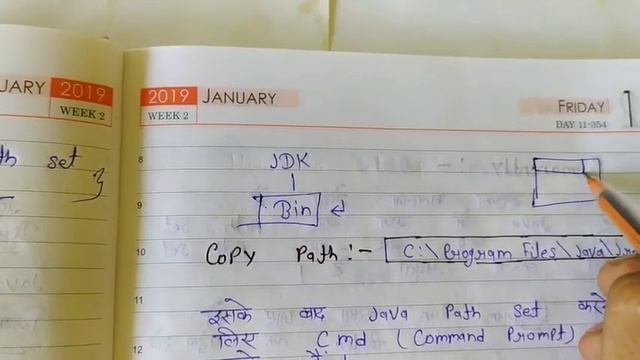 UARY 2019
WEEK 2
th set
2019 JANUARY
WEEK 2
FRIDAY
DAY 11-354
1
8
JDK
9
Bin
10
Copy Path :- C:\Program Files\Java\J
11
इसके बाद Java Path set करने
लिए Cmd (Command Prompt)
12